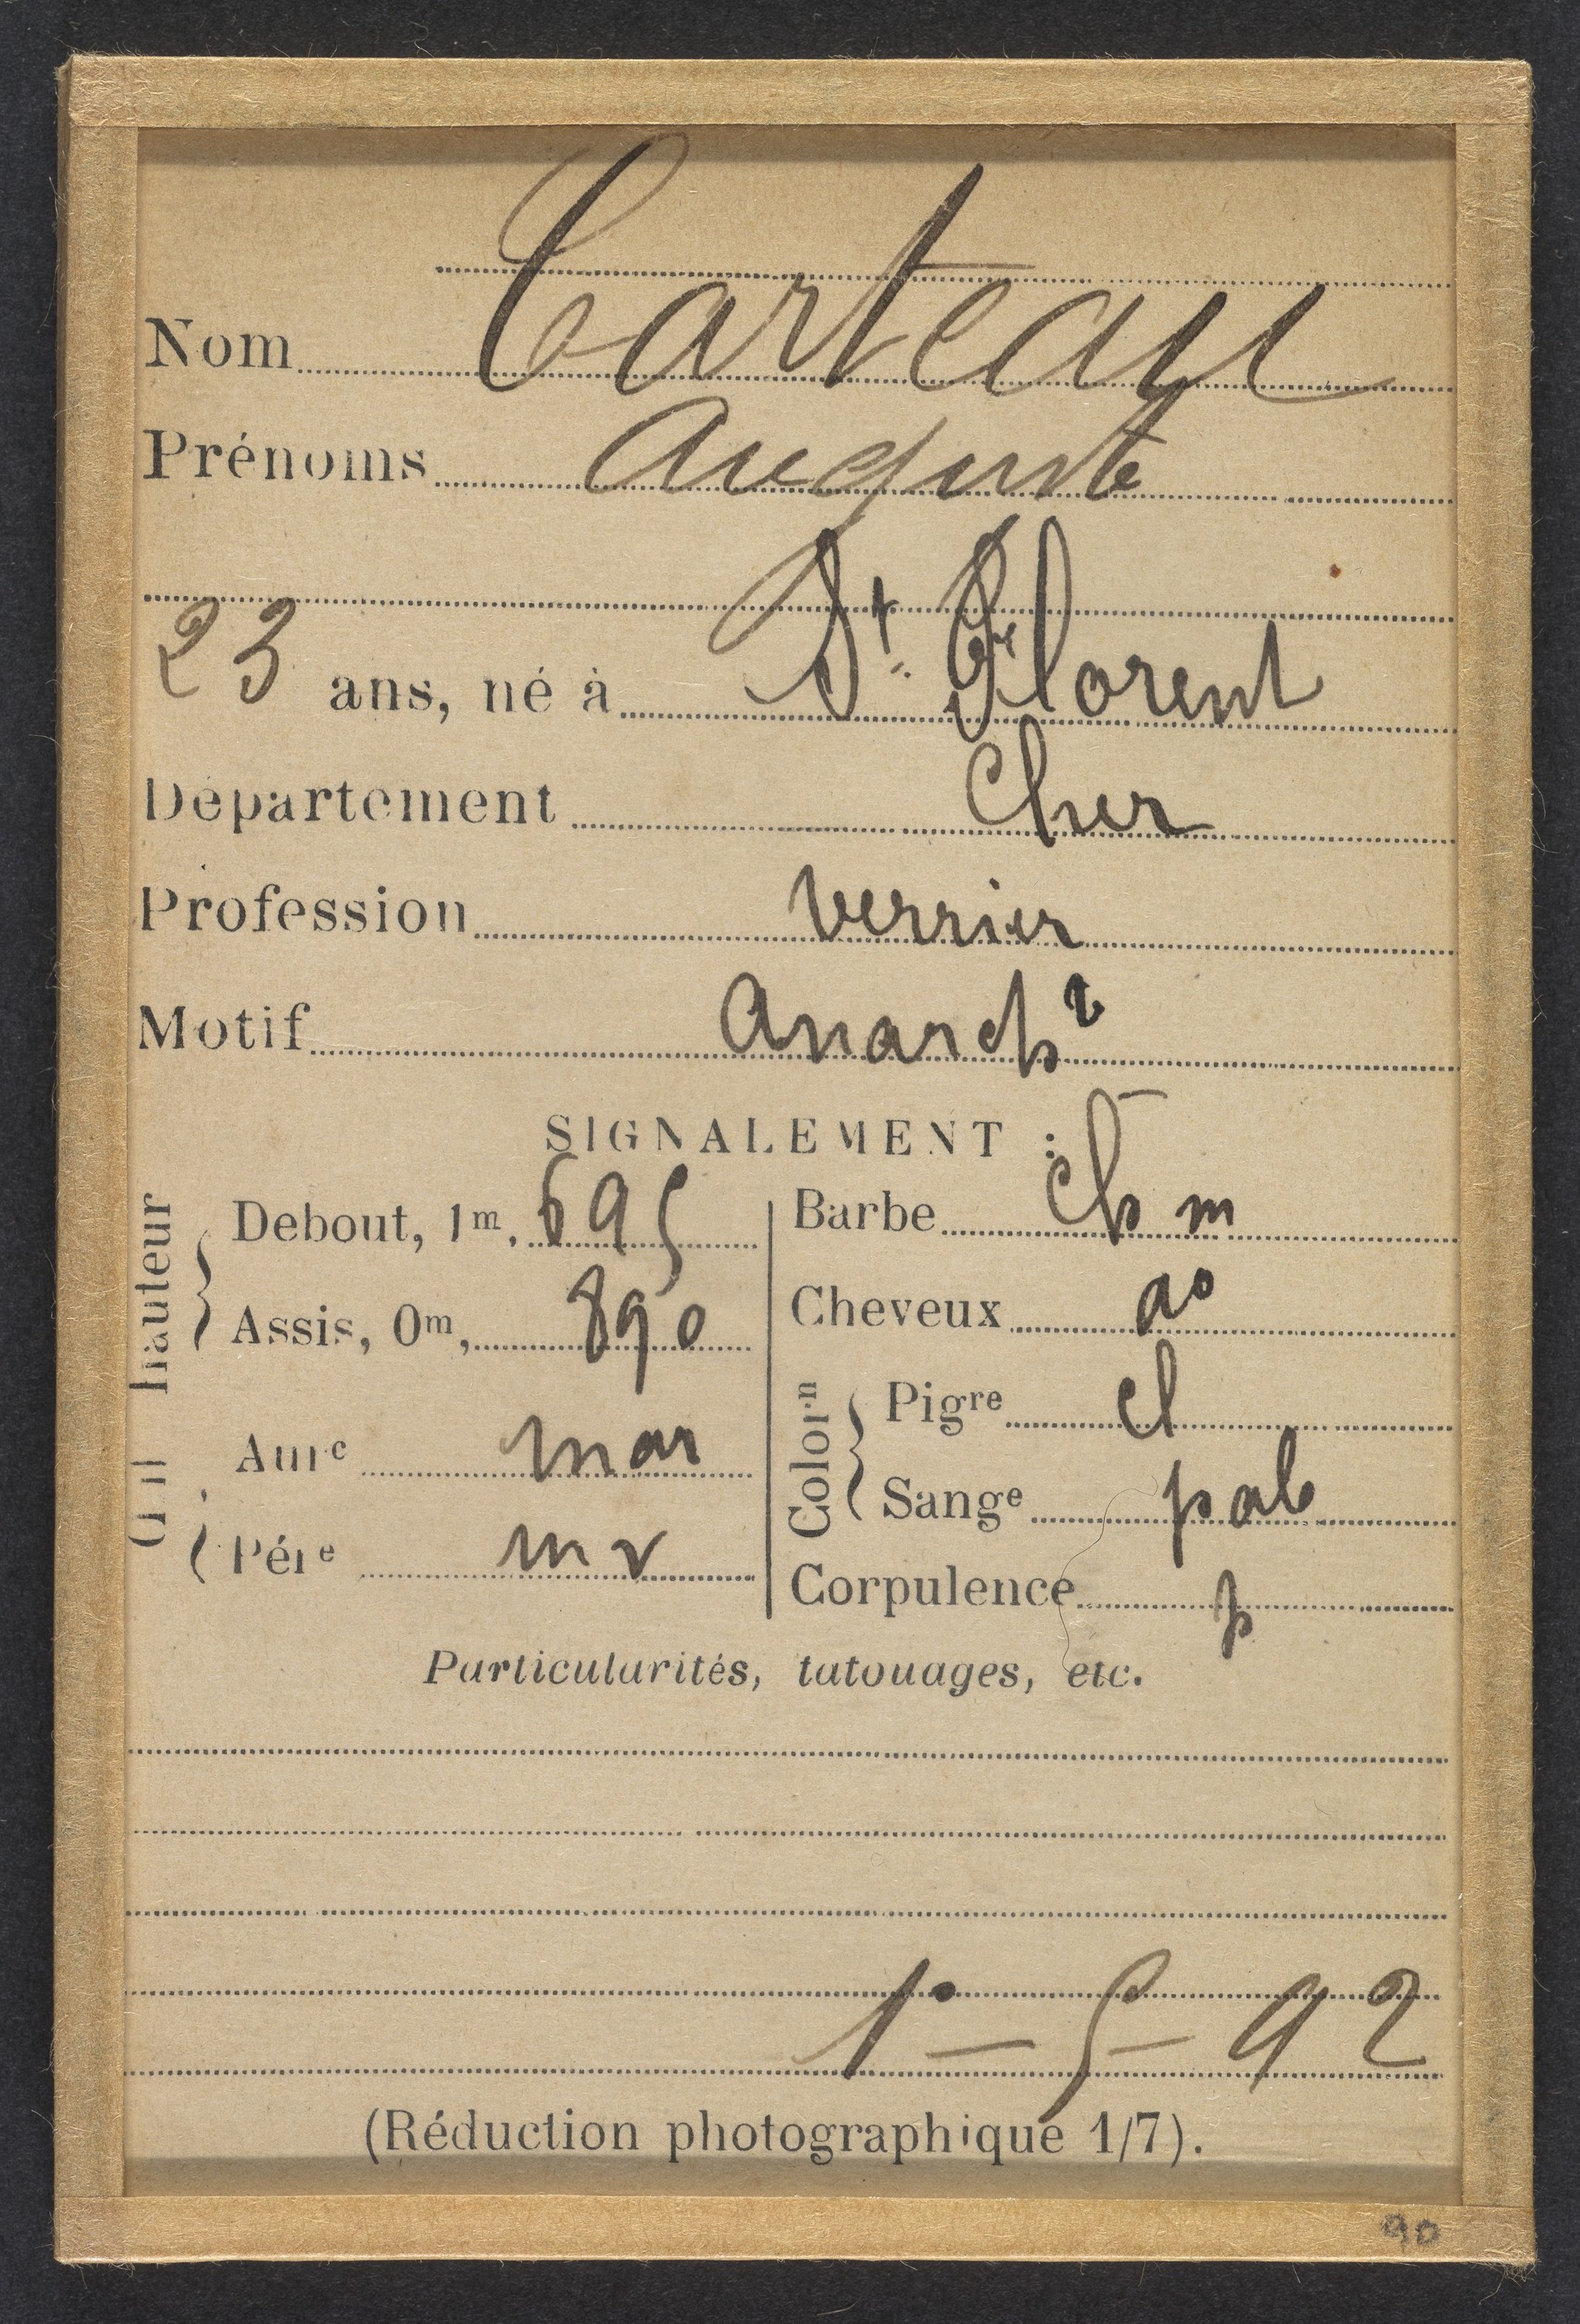 Nom Carteau
Prénoms Auguste
23 ans, né à St. Florent
Département Cher
Profession Verrier
Motif Anarch
SIGNALEMENT :
hauteur
Debout, 1m, 695
Assis, 0m, 890
Aure mar
Pére m v
Barbe ch m
Cheveux ao
Colorn
Pigre cl
Sange pale
Corpulence p
Particularités, tatouages, etc.
1° - 5 - 92
(Réduction photographique 1/7).
90